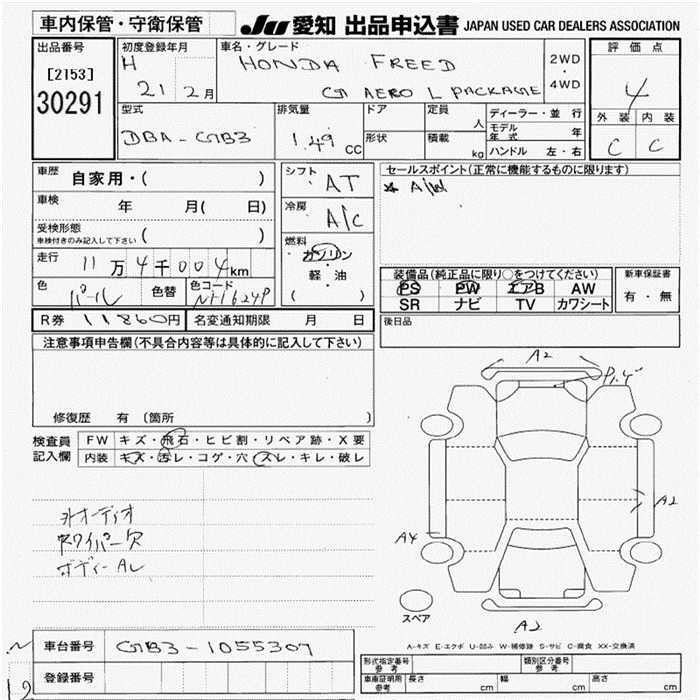 車内保管・守衛保管
JU 愛知 出品申込書 JAPAN USED CAR DEALERS ASSOCIATION
出品番号
[2153]
30291
初度登録年月
H 21 2月
車名・グレード
HONDA FREED
G AERO L PACKAGE
2WD
・
4WD
評価点
4
外装 内装
C C
型式
DBA-GB3
排気量
1.49 CC
ドア
形状
定員 人
積載 kg
ディーラー・並行
モデル 年
ハンドル 左・右
車歴 自家用・( )
車検 年 月( 日)
受検形態
車検付きのみ記入して下さい ( )
走行 11万4千004km
色 パール 色替 色コード NH624P
シフト AT
冷房 A/C
燃料
ガソリン
・
軽・油
( )
セールスポイント(正常に機能するものに限ります)
A/W
装備品(純正品に限り○をつけてください)
PS PW エアB AW
SR ナビ TV カワシート
新車保証書
有・無
R券 11860円 名変通知期限 月 日
後日品
注意事項申告欄(不具合内容等は具体的に記入して下さい)
修復歴 有 〔箇所
検査員
記入欄
FW キズ・飛石・ヒビ割・リペア跡・X要
内装 キズ・汚レ・コゲ・穴・スレ・キレ・破レ
オーディオ
ワイパー欠
ボディーAL
A2
A2
A4
A2
スペア
A-キズ E-エクボ U-凹み W-補修跡 S-サビ C-腐食 XX-交換済
車台番号 GB3-1055307
登録番号
形式指定番号
参考
類別区分番号
参考
車庫証明用
参考
長さ cm
幅 cm
高さ cm